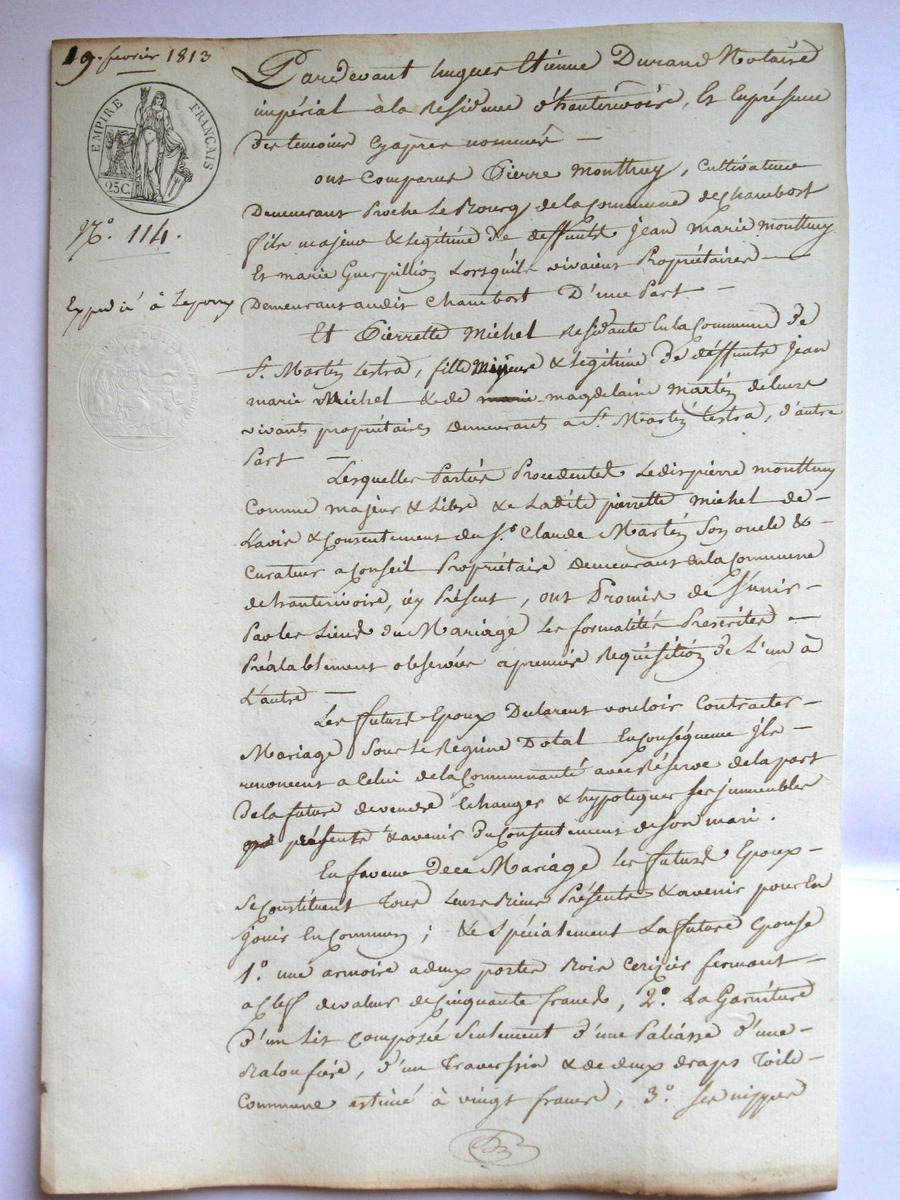 19. fevrier 1813
EMPIRE FRANÇAIS
25C.
N.° 114.
Expedié à
Pardevant hugues Etienne Durand Notaire
impérial à la Residence d'hauterivoire, Et Enprésence
des temoins cyaprès nommés —
ont Comparus Pierre Monttruy, Cultivateur
Demeurant Proche Le Bourg de la Commune de Chambost
fils majeur & Légitime de deffunts Jean Marie Monttruy
Et marie Guerpillion Lorsquils vivaient Propriétaires —
Demeurants audit Chambost D'une Part —
Et Pierrette Michel Residante En la Commune de
S.t Martin Lestra, fille Mineure & Légitime de deffunts Jean
marie Michel & de marie magdelaine Martin de leurs
vivants propriétaires demeurants a S.t Martin Lestra, d'autre
Part —
Lesquelles Parties Procedentes Ledit pierre Monttruy
Comme majeur & Libre & Ladite pierrette Michel de —
L'avis & Consentement du S.r Claude Martin Son oncle & —
Curateur a Conseil Propriétaire demeurant En la Commune
de hauterivoire, icy Présent, ont Promis de S'unir —
Par les Liens du Mariage Les formalités Prescrites —
Préalablement observées a première Requisition de L'un à
L'autre —
Les futurs Epoux Declarent vouloir Contracter —
Mariage Sous le Régime Dotal En conséquence ils —
renoncent a Celui de la Communauté avec Réserve de la part
de la future de vendre Echanger & hypotéquer ses immeubles
présents & avenir du Consentement de son mari.
En faveur de ce Mariage les futurs Epoux —
Se Constituent Tous Leurs Biens Présents & avenir pour En
Jouir En Commun ; & Spécialement La future Epouse
1.° une armoire a deux portes Bois Cerisier fermant —
a Clef de valeur de Cinquante francs, 2.° La Garniture
d'un Lit Composée Seulement d'une Paliasse d'une —
Baloufière, d'un Traversin & de deux draps Toile —
Commune estimé à vingt francs, 3.° Ses nippes